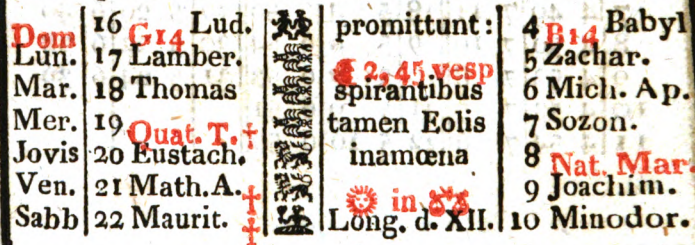 Dom 16 G14 Lud. promittunt: 4 B14 Babyl
Lun. 17 Lamber. 2,45 vesp 5 Zachar.
Mar. 18 Thomas spirantibus 6 Mich. Ap.
Mer. 19 Quat. T.† tamen Eolis 7 Sozon.
Jovis 20 Eustach. inamœna 8 Nat. Mar.
Ven. 21 Math. A. † in 9 Joachim.
Sabb 22 Maurit. ‡ Long. d. XII. 10 Minodor.